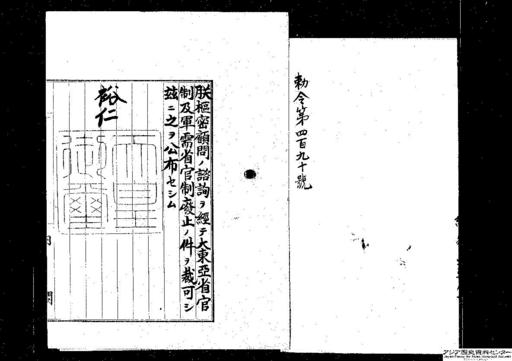 勅令第四百九十號
朕樞密顧問ノ諮詢ヲ經テ大東亞省官
制及軍需省官制廢止ノ件ヲ裁可シ
茲ニ之ヲ公布セシム
裕仁
天皇
御璽
アジア歴史資料センター